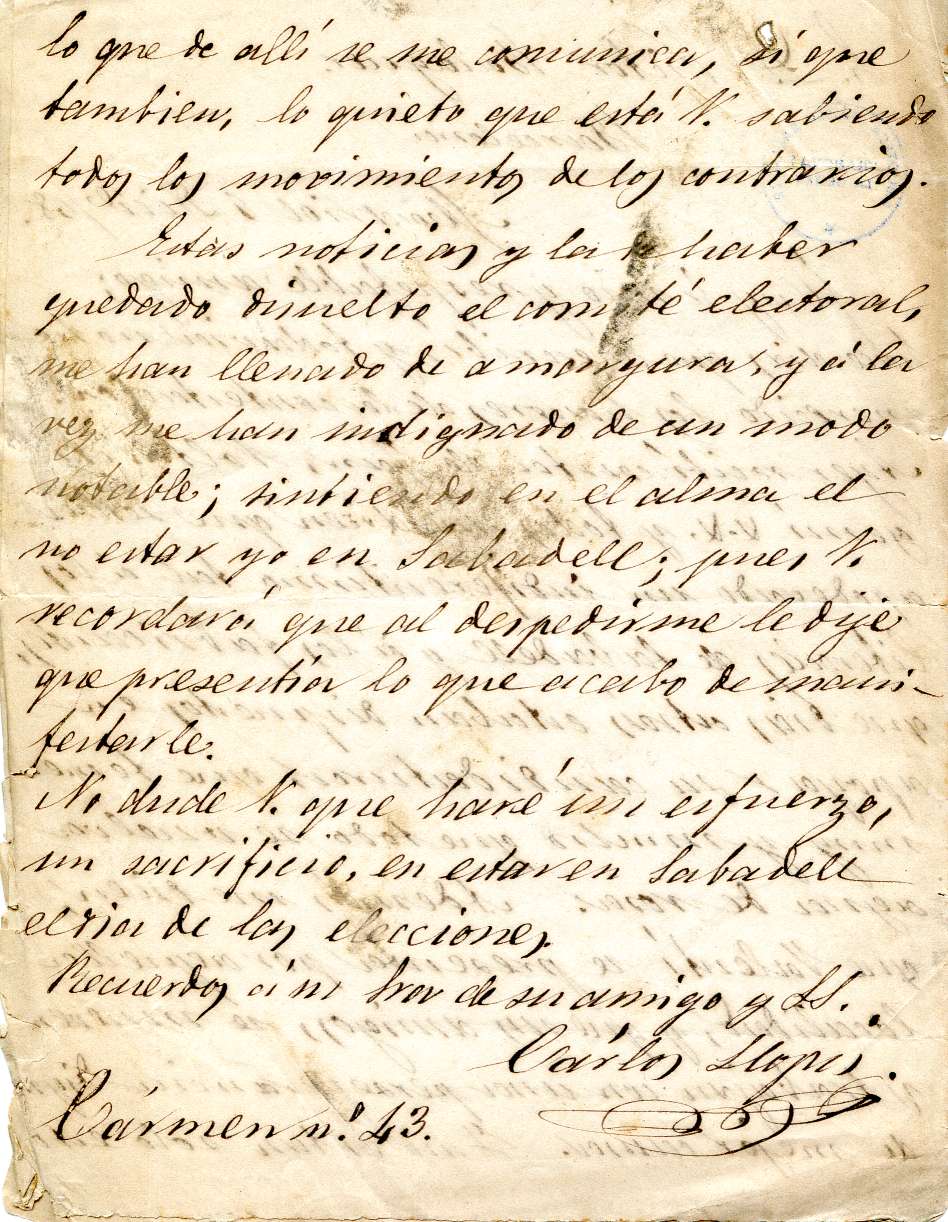 lo que de allí se me comunica, sí que
tambien, lo quieto que está V. sabiendo
todos los movimientos de los contrarios.
Estas noticias y la de haber
quedado disuelto el comité electoral,
me han llenado de amargura, y á la
vez me han indignado de un modo
notable; sintiendo en el alma el
no estar yo en Sabadell; pues V.
recordará que al despedirme le dije
que presentía lo que acabo de mani-
festarle.
No dude V. que haré un esfuerzo,
un sacrificio, en estar en Sabadell
el dia de las elecciones.
Recuerdos á su Sra de su amigo y SS.
Cárlos Llopis.
Cármen n.º 43.